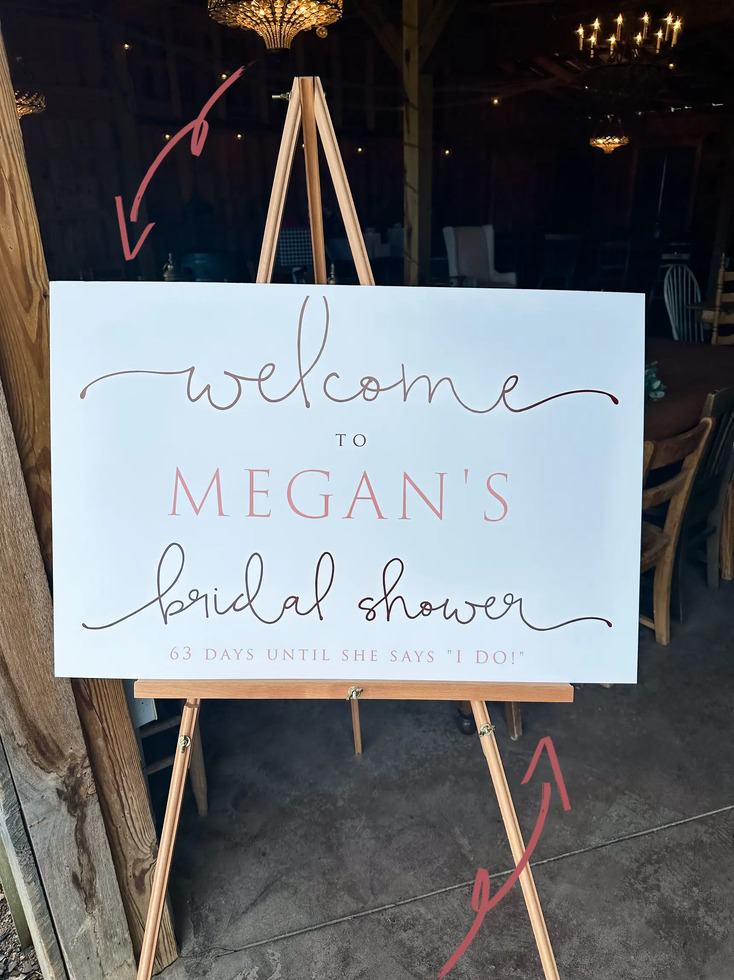 welcome
TO
MEGAN'S
bridal shower
63 DAYS UNTIL SHE SAYS "I DO!"